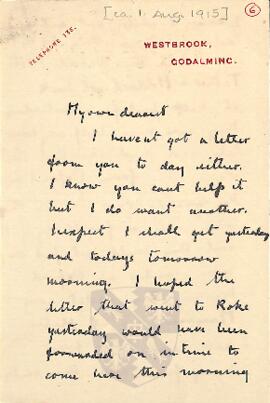 [ca. 1 Aug. 1915]
6
TELEPHONE 135.
WESTBROOK,
GODALMING.
My own dearest
I havent got a letter
from you to day either.
I know you cant help it
but I do want another.
I expect I shall get yesterday
and todays tomorrow
morning. I hoped the
letter that went to Roke
yesterday would have been
forwarded on in time to
come here this morning